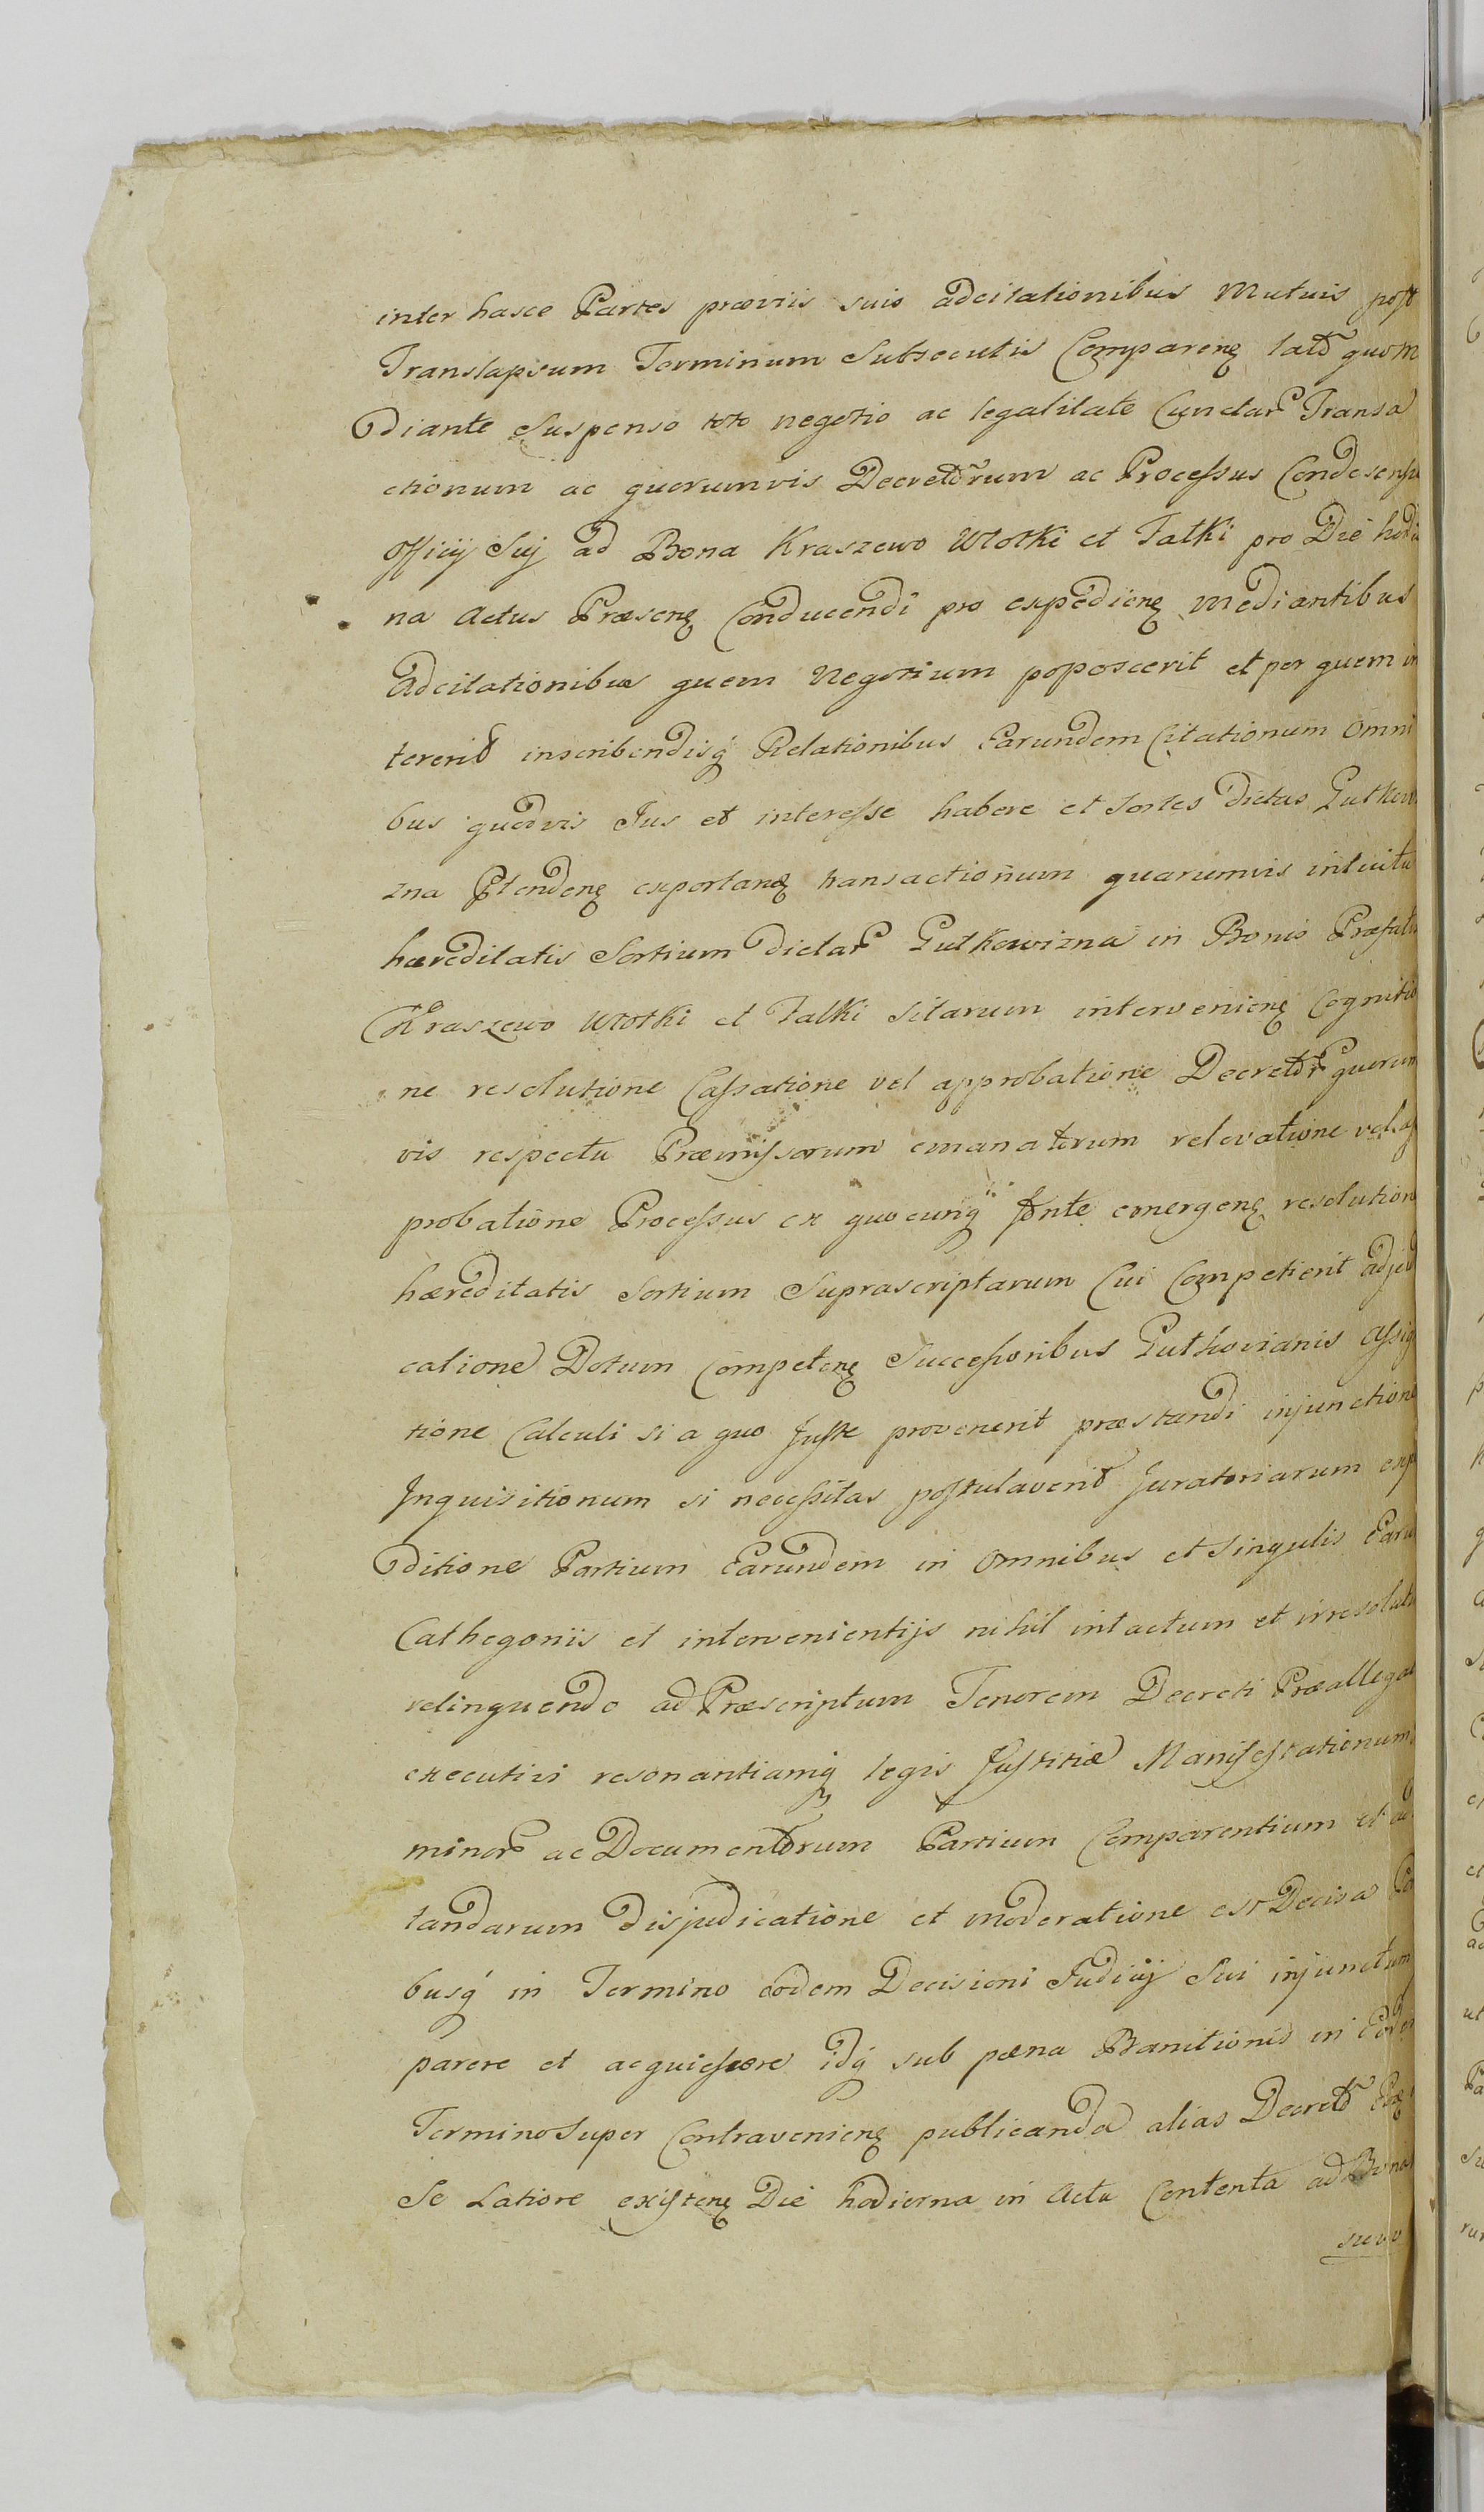 inter hasce Partes præviis suis adcitationibus Mutuis post
Translapsum Terminum Subsecutis Comparenę latō quom
diante Suspenso toto negotio ac legalitate Cunctar Transa
ctionum ac quorumvis Decretorum ac Processus Condescensu
Officij Sui ad Bona Kraszewo Wlotki et Falki pro Die hodi
na Actus Præsenę Conducendi pro expedienę mediantibus
Adcitationibus quem Negotium poposcerit et per quem in
tererit inscribendisq́ Relationibus Earundem Citationum Omni
bus quodvis Jus et interesse habere et Sortes Dictas Gutkow
zna Ptendenę exportanę transactionum quarumvis intuitu
hæreditatis Sortium dictar Gutkowizna in Bonis Præfatis
Kraszewo Wlotki et Falki sitarum intervenienę Cognitio
ne resolutione Cassatione vel approbatione Decretor quorum
vis respectu Præmissorum emanatorum relevatione vel ap
probatione Processus ex quocunq́ fonte emergenę resolution
hæreditatis Sortium Suprascriptarum Cui Competierit adjud
catione Dotum Competenę Successoribus Guthovianis Assig
tione Calculi si a quo Juste provenerit præstandi injunctione
Inquisitionum si necessitas postulaverit Juratoriarum exp
ditione Partium Earundem in Omnibus et Singulis Earu
Cathegoriis et intervenientijs nihil intactum et irresolutu
relinquendo ad Præscriptum Tenorem Decreti Præallega
executivi resonantiamq́ legis Justitiæ Manifestationum
minor ac Documentorum Partium Comparentium et ad
tandarum disjudicatione et moderatione est Decisa
busq́ in Termino eodem Decisioni Judicij Sui injunctum
parere et acquiescere idq́ sub pœna Banitionis in Eodem
Termino Super Contravenienę publicanda alias Decretō
Se Latiore existenę Die hodierna in Actu Contenta ad Bona